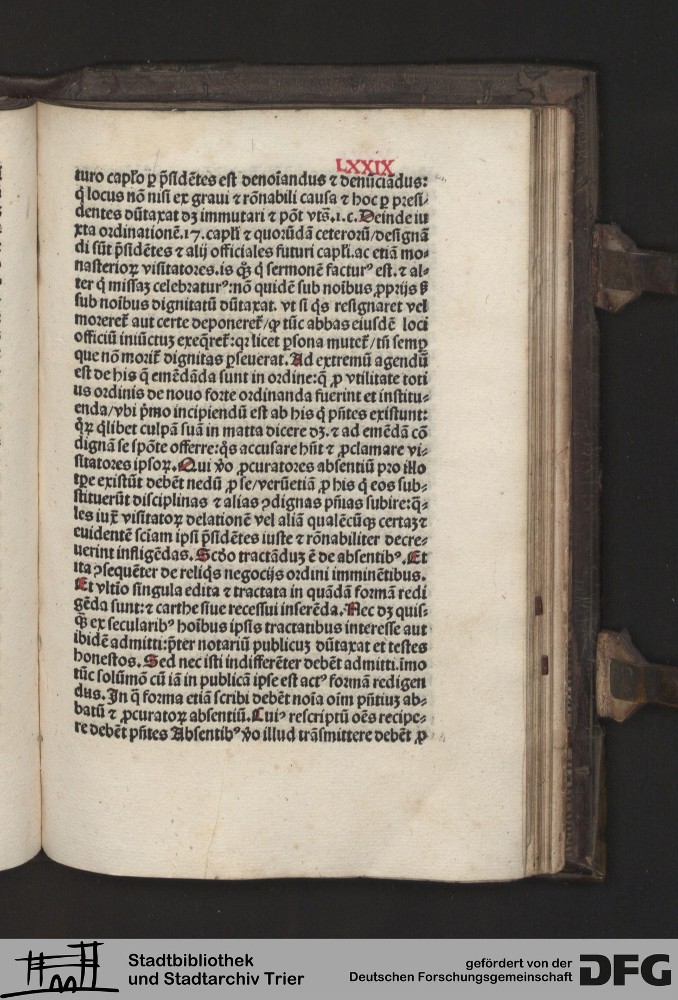 LXXIX
turo capło ꝑ p̃sidẽtes est denoĩandus ⁊ denũciãdus:
q̃ locus nõ nisi ex graui ⁊ rõnabili causa ⁊ hoc ꝑ presi⸗
dentes dũtaxat dꝫ immutari ⁊ põt vts̃.1.c. Deinde iu
xta ordinationẽ.17.capłi ⁊ quorũdã ceterorũ/designã
di sũt p̃sidẽtes ⁊ alij officiales futuri capłi.ac etiã mo⸗
nasterioꝝ visitatores.is qꝫ̃ q̃ sermonẽ facturꝰ est.⁊ al⸗
ter q̃ missaꝫ celebraturꝰ:nõ quidẽ sub noĩbus ꝓprijs ß
sub noĩbus dignitatũ dũtaxat. vt si q̃s resignaret vel
morereƭ aut certe deponereƭ/ꝙ tũc abbas eiusdẽ loci
officiũ iniũctuꝫ exeq̃reƭ:qꝛ licet ꝑsona muteƭ/tñ semꝑ
que nõ moriƭ dignitas ꝑseuerat. Ad extremũ agendũ
est de his q̃ emẽdãda sunt in ordine:q̃ ꝓ vtilitate toti
us ordinis de nouo forte ordinanda fuerint et institu⸗
enda/vbi p̃mo incipiendũ est ab his q̃ pñtes existunt:
q̃ꝝ q̃libet culpã suã in matta dicere dꝫ.⁊ ad emẽdã cõ
dignã se spõte offerre:q̃s accusare hñt ⁊ ꝓclamare vi⸗
sitatores ipsoꝝ. Qui ṽo ꝓcuratores absentiũ pro illo
tꝑe existũt debẽt nedũ ꝓ se/verũetiã ꝓ his q̃ eos sub⸗
stituerũt disciplinas ⁊ alias ꝯdignas pñias subire:q̃⸗
les iux̃ visitatoꝝ delationẽ vel aliã qualẽcũqꝫ certaꝫ ⁊
euidentẽ sciam ipsi p̃sidẽtes iuste ⁊ rõnabiliter decre⸗
uerint infligẽdas. Scđo tractãduꝫ ẽ de absentibꝰ. Et
ita ꝯsequẽter de reliq̃s negocijs ordini imminẽtibus.
Et vltĩo singula edita ⁊ tractata in quãdã formã redi
gẽda sunt:⁊ carthe siue recessui inserẽda. Nec dꝫ quis⸗
qꝫ̃ ex secularibꝰ hoĩbus ipsis tractatibus interesse aut
ibidẽ admitti:p̃ter notariũ publicuꝫ dũtaxat et testes
honestos. Sed nec isti indifferẽter debẽt admitti.ĩmo
tũc solũmõ cũ iã in publicã ipse est actꝰ formã redigen
dus. In q̃ forma etiã scribi debẽt noĩa oĩm pñtiuꝫ ab⸗
batũ ⁊ ꝓcuratoꝝ absentiũ. Cuiꝰ rescriptũ oẽs recipe⸗
re debẽt pñtes Absentibꝰ ṽo illud trãsmittere debẽt ꝓ
Stadtbibliothek
und Stadtarchiv Trier
gefördert von der
Deutschen Forschungsgemeinschaft
DFG